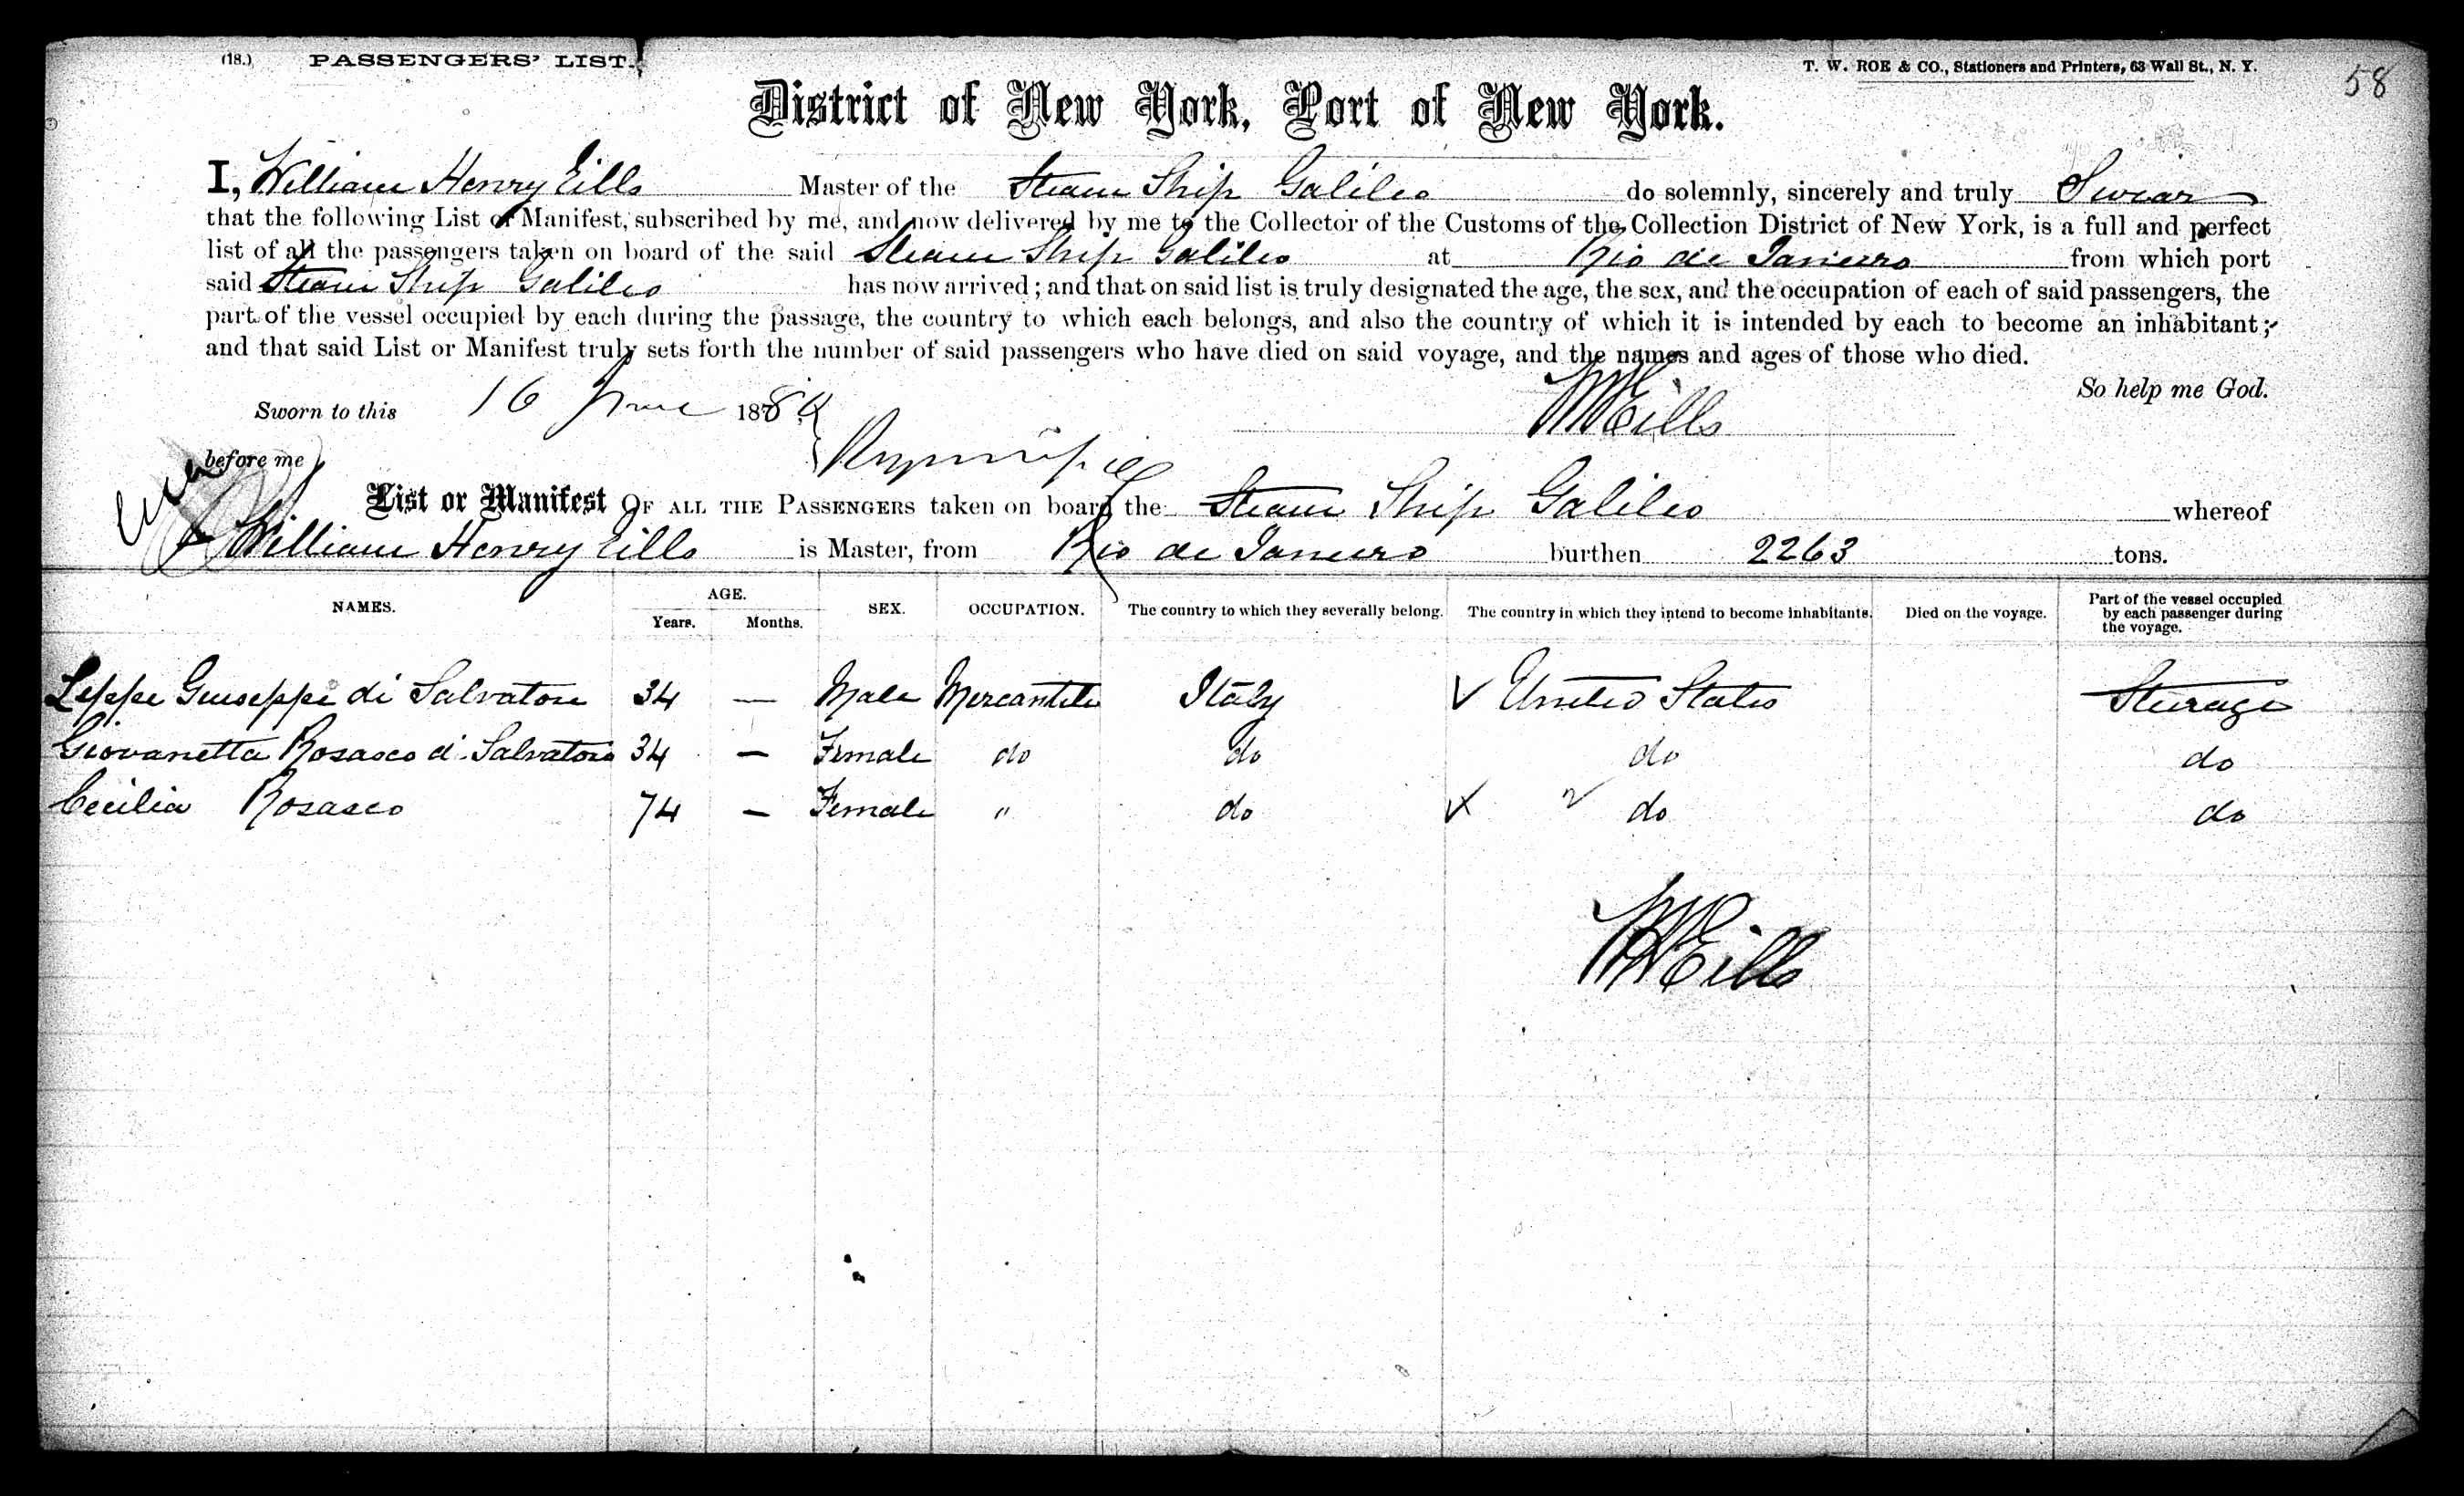 (18.) PASSENGERS' LIST.
T. W. ROE & CO., Stationers and Printers, 63 Wall St., N. Y.
58
District of New York, Port of New York.
I, William Henry Eills Master of the Steam Ship Galileo do solemnly, sincerely and truly Swear
that the following List or Manifest, subscribed by me, and now delivered by me to the Collector of the Customs of the Collection District of New York, is a full and perfect
list of all the passengers taken on board of the said Steam Ship Galileo at Rio de Janeiro from which port
said Steam Ship Galileo has now arrived; and that on said list is truly designated the age, the sex, and the occupation of each of said passengers, the
part of the vessel occupied by each during the passage, the country to which each belongs, and also the country of which it is intended by each to become an inhabitant;
and that said List or Manifest truly sets forth the number of said passengers who have died on said voyage, and the names and ages of those who died.
So help me God.
Sworn to this 16 June 188
WHEills
before me
List or Manifest OF ALL THE PASSENGERS taken on board the Steam Ship Galileo whereof
William Henry Eills is Master, from Rio de Janeiro burthen 2263 tons.
NAMES. AGE. Years. Months. SEX. OCCUPATION. The country to which they severally belong. The country in which they intend to become inhabitants. Died on the voyage. Part of the vessel occupied by each passenger during the voyage.
Leppe Guiseppe di Salvatore 34 — Male Mercantile Italy United States Steerage
Giovanetta Rosasco di Salvatore 34 — Female do do do do
Cecilia Rosasco 74 — Female " do do do
WHEills